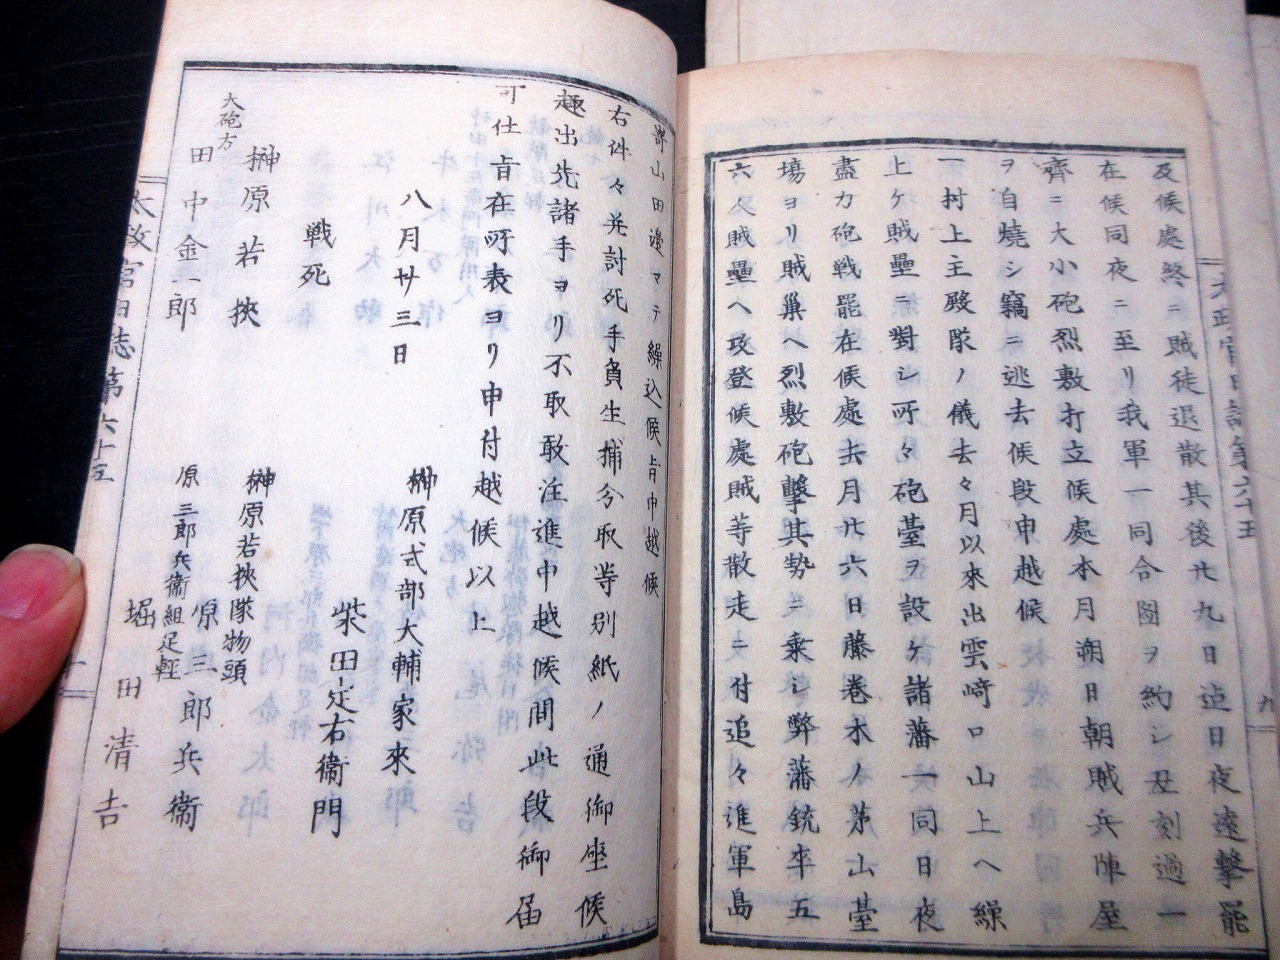 及候處終ニ賊徒退散其後廿九日迠日夜遠撃罷
在候同夜ニ至リ我軍一同合圖ヲ約シ丑刻過一
齊ニ大小砲烈敷打立候處本月朔日朝賊兵陣屋
ヲ自燒シ竊ニ逃去候段申越候
一村上主殿隊ノ儀去々月以來出雲崎口山上ヘ繰
上ケ賊壘ニ對シ所々砲臺ヲ設ケ諸藩一同日夜
盡力砲戦罷在候處去月廿六日藤巻木ノ茅山臺
塲ヨリ賊巢ヘ烈敷砲擊其势ニ乗シ弊藩銃卒五
六人賊壘ヘ攻登候處賊等散走ニ付追々進軍島
嵜山田邊マテ繰込候旨申越候
右件々并討死手負生捕分取等別紙ノ通御座候
趣出先諸手ヨリ不取敢注進申越候間此段御届
可仕旨在所表ヨリ申付越候以上
八月廿三日
榊原式部大輔家來
柴田定右衛門
戦死
榊原若挾隊物頭
原三郎兵衛
榊原若挾
原三郎兵衛組足輕
堀田清吉
大砲方
田中金一郎
太政官日誌第六十五
太政官日誌第六十五
九